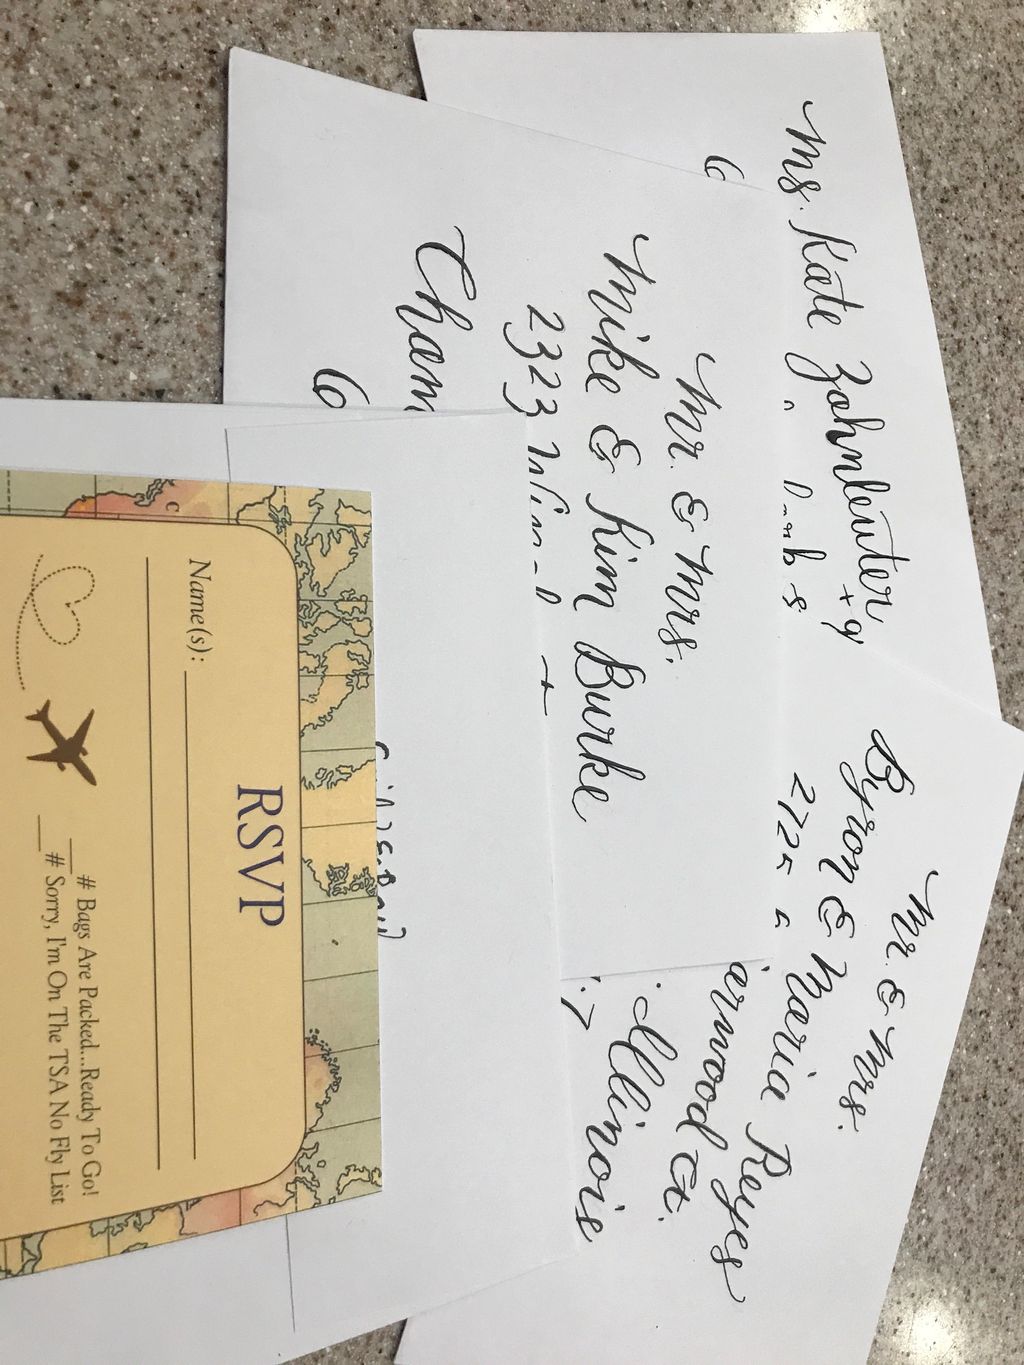 Ms. Kate Zahnleuter
+ g
6
Mr. & Mrs.
Mike & Kim Burke
2323
Cham
6
Mr. & Mrs.
Byron & Maria Reyes
arwood Ct.
Illinois
RSVP
Name(s):
__# Bags Are Packed...Ready To Go!
__# Sorry, I'm On The TSA No Fly List